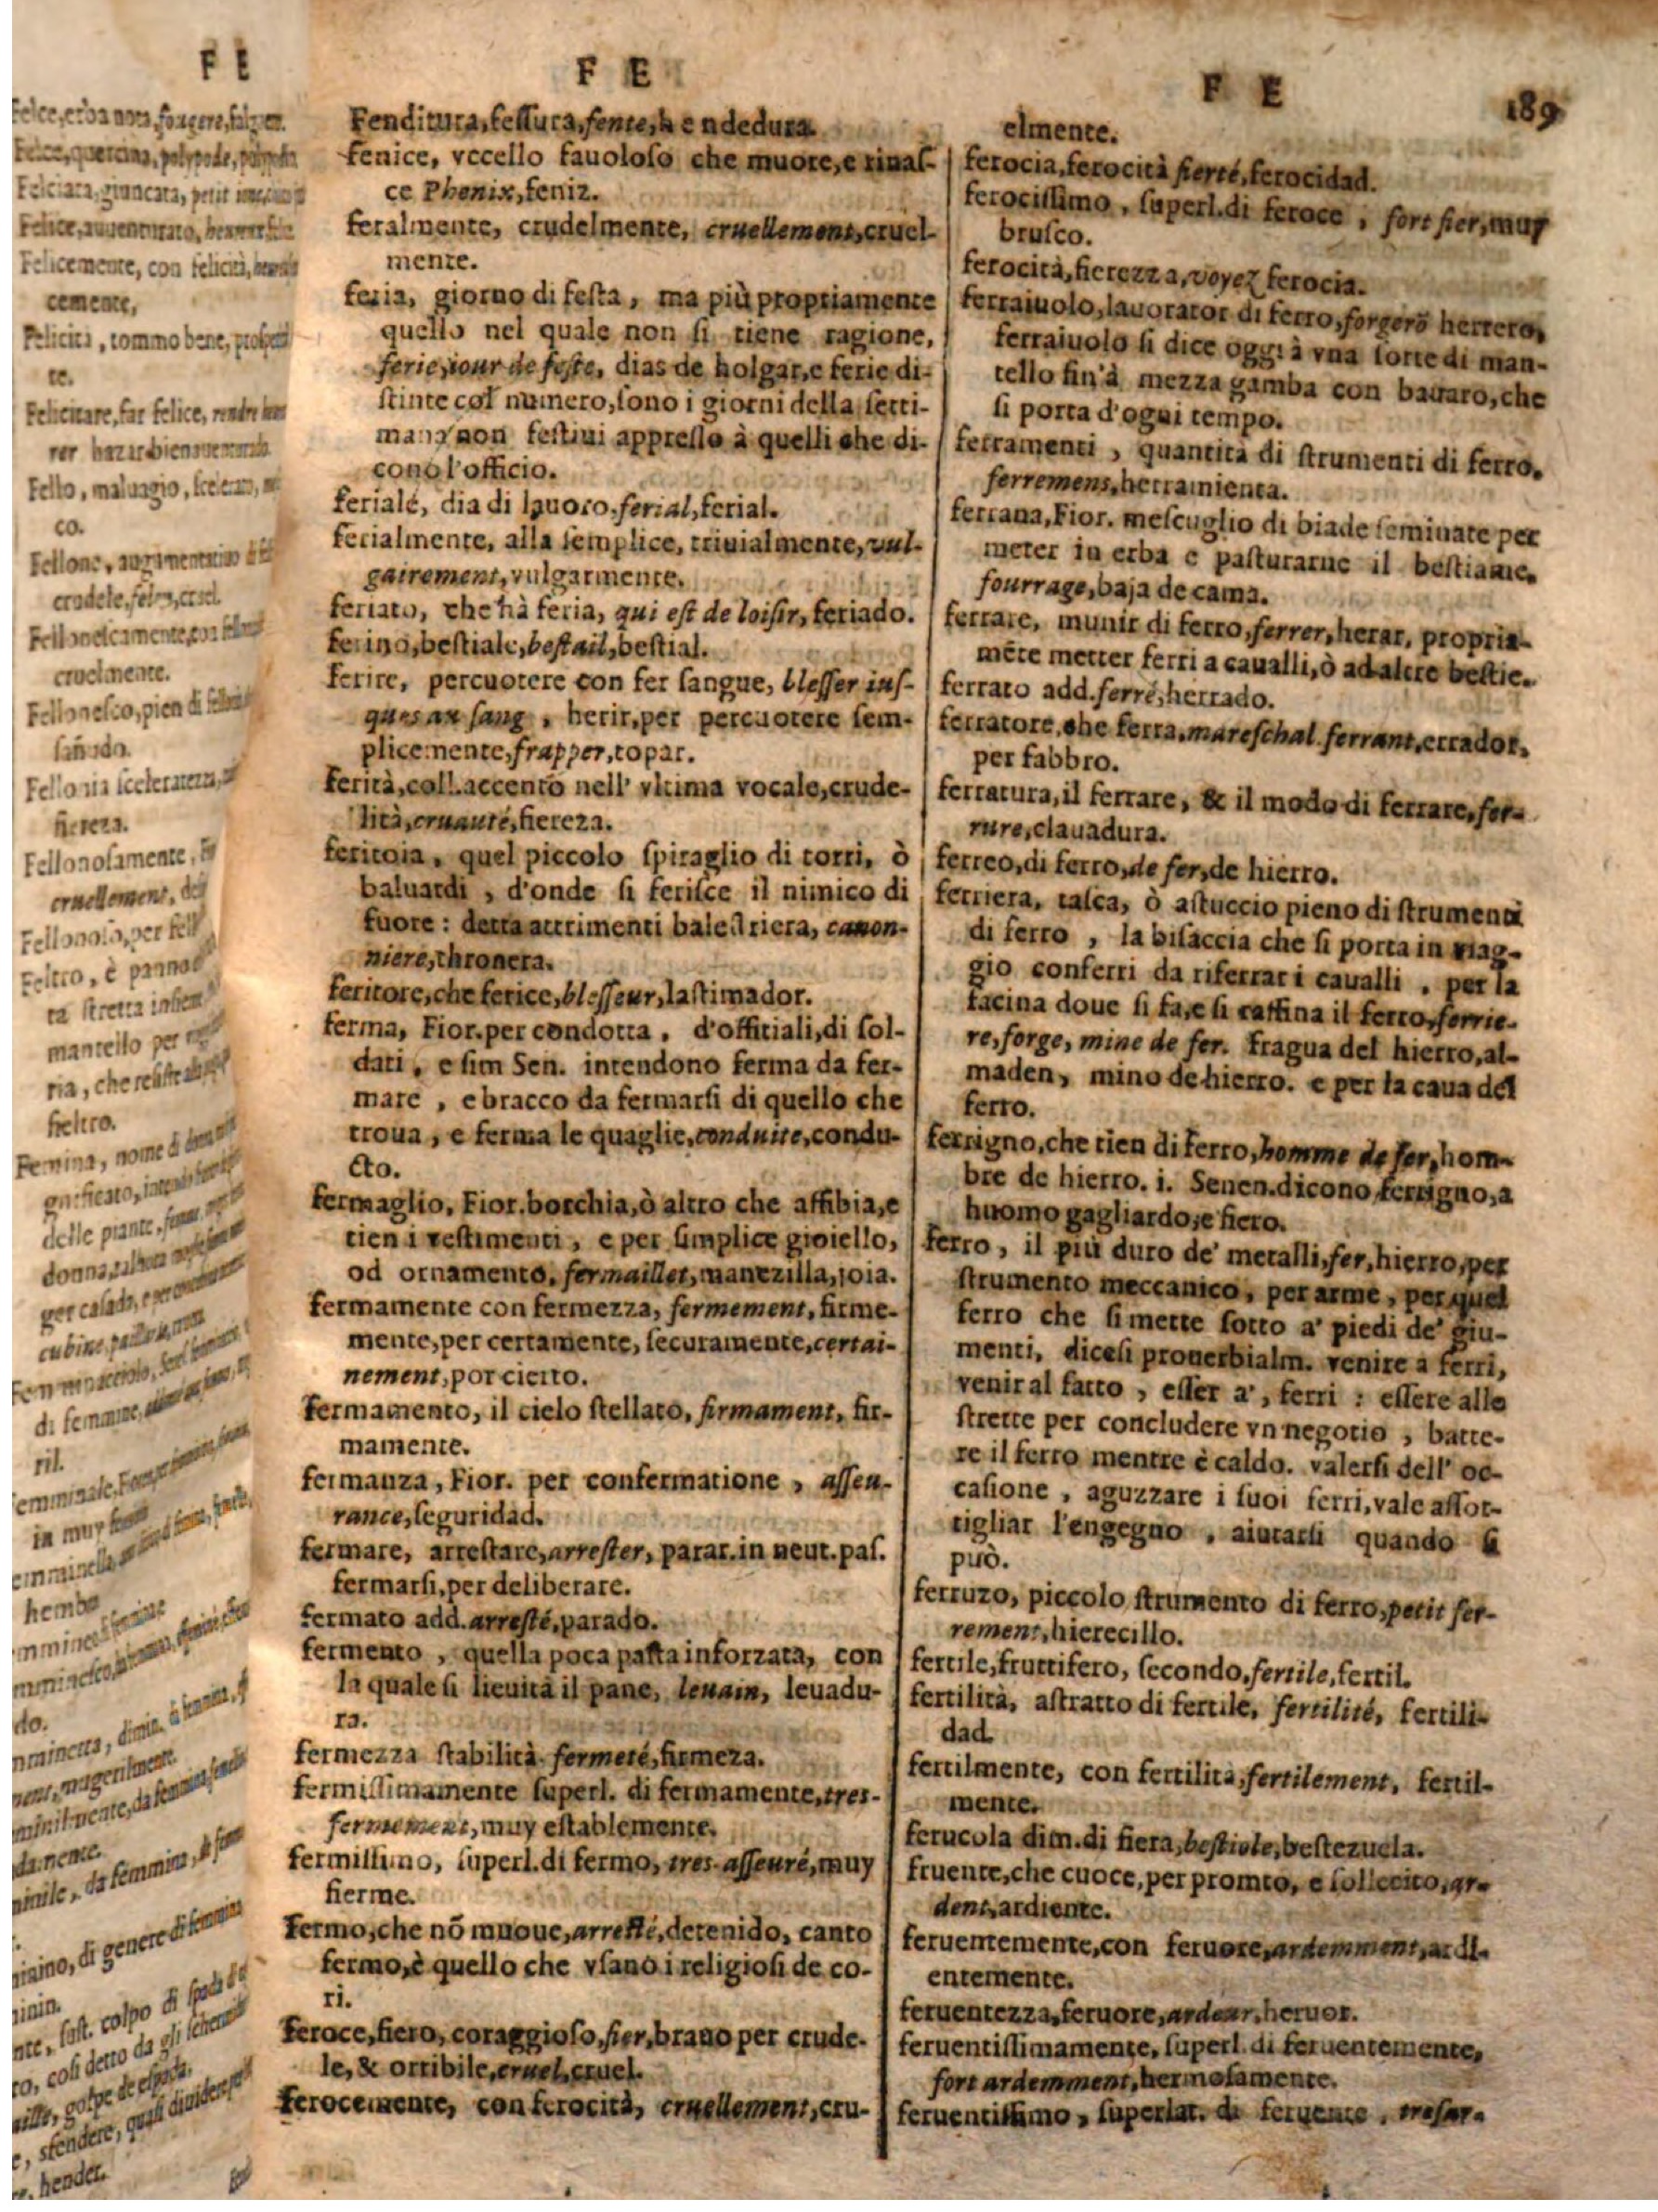 F E
Felice, auuenturato,
Felicemente, con felicità,
cemente,
Felicità, sommo bene,
te.
Felicitare, far felice, rendre
Fello, maluagio,
co.
Fellone,
crudele, felon, cruel.
cruelmente.
Fellonesco, pien di
sañudo.
Fellonia sceleratezza,
fiereza.
Fellonosamente,
cruellement,
Fellonoso, per fell
Feltro, è panno
ta stretta insiem
mantello per
ria, che resiste
fieltro.
Femina, nome di
delle piante,
di femmine,
ril.
in muy
hembra
do.
da femmina,
ninin.
hender.
F E
Fenditura, fessura, fente, hendedura.
fenice, vccello fauoloso che muore, e rinas-
ce Phenix, feniz.
feralmente, crudelmente, cruellement, cruel-
mente.
feria, giorno di festa, ma più propriamente
quello nel quale non si tiene ragione,
ferie, iour de feste, dias de holgar, e ferie di-
stinte col numero, sono i giorni della setti-
mana non festiui appresso à quelli che di-
cono l'officio.
feriale, dia di lauoro, ferial, ferial.
ferialmente, alla semplice, triuialmente, vul-
gairement, vulgarmente.
feriato, che hà feria, qui est de loisir, feriado.
ferino, bestiale, bestail, bestial.
ferire, percuotere con fer sangue, blesser ius-
ques au sang, herir, per percuotere sem-
plicemente, frapper, topar.
ferità, coll. accento nell' vltima vocale, crude-
lità, cruauté, fiereza.
feritoia, quel piccolo spiraglio di torri, ò
baluardi, d'onde si ferisce il nimico di
fuore: detta attrimenti balestriera, canon-
niere, thronera.
feritore, che ferice, blesseur, lastimador.
ferma, Fior. per condotta, d'offitiali, di sol-
dati, e sim Sen. intendono ferma da fer-
mare, e bracco da fermarsi di quello che
troua, e ferma le quaglie, conduite, condu-
cto.
fermaglio, Fior. borchia, ò altro che affibia, e
tien i vestimenti, e per simplice gioiello,
od ornamento, fermaillet, manezilla, joia.
fermamente con fermezza, fermement, firme-
mente, per certamente, securamente, certai-
nement, por cierto.
fermamento, il cielo stellato, firmament, fir-
mamente.
fermanza, Fior. per confermatione, asseu-
rance, seguridad.
fermare, arrestare, arrester, parar. in neut. pas.
fermarsi, per deliberare.
fermato add. arresté, parado.
fermento, quella poca pasta inforzata, con
la quale si lieuita il pane, leuain, leuadu-
ra.
fermezza stabilità fermeté, firmeza.
fermissimamente superl. di fermamente, tres-
fermement, muy establemente.
fermissimo, superl. di fermo, tres-asseuré, muy
fierme.
fermo, che nõ muoue, arresté, detenido, canto
fermo, è quello che vsano i religiosi de co-
ri.
feroce, fiero, coraggioso, fier, brauo per crude-
le, & orribile, cruel, cruel.
ferocemente, con ferocità, cruellement, cru-
F E 189
elmente.
ferocia, ferocità fierté, ferocidad.
ferocissimo, superl. di feroce, fort fier, muy
brusco.
ferocità, fierezza, voyez ferocia.
ferraiuolo, lauorator di ferro, forgerõ herrero,
ferraiuolo si dice oggi à vna sorte di man-
tello fin'à mezza gamba con bauaro, che
si porta d'ogni tempo.
ferramenti, quantità di strumenti di ferro.
ferremens, herramienta.
ferrana, Fior. mescuglio di biade seminate per
meter in erba e pasturarne il bestiame.
fourrage, baja de cama.
ferrare, munir di ferro, ferrer, herar, propria-
mẽte metter ferri a caualli, ò ad altre bestie.
ferrato add. ferré, herrado.
ferratore, che ferra, mareschal ferrant, errador,
per fabbro.
ferratura, il ferrare, & il modo di ferrare, fer-
rure, clauadura.
ferreo, di ferro, de fer, de hierro.
ferriera, tasca, ò astuccio pieno di strumenti
di ferro, la bisaccia che si porta in viag-
gio conferri da riferrar i caualli, per la
facina doue si fa, e si raffina il ferro, ferrie-
re, forge, mine de fer. fragua del hierro, al-
maden, mino de hierro. e per la caua del
ferro.
ferrigno, che tien di ferro, homme de fer, hom-
bre de hierro. i. Senen. dicono ferrigno, a
huomo gagliardo, e fiero.
ferro, il più duro de' metalli, fer, hierro, per
strumento meccanico, per arme, per quel
ferro che si mette sotto a' piedi de' giu-
menti, dicesi prouerbialm. venire a ferri,
venir al fatto, esser a', ferri: essere alle
strette per concludere vn negotio, batte-
re il ferro mentre è caldo. valersi dell' oc-
casione, aguzzare i suoi ferri, vale assot-
tigliar l'engegno, aiutarsi quando si
può.
ferruzo, piccolo strumento di ferro, petit fer-
rement, hierecillo.
fertile, fruttifero, secondo, fertile, fertil.
fertilità, astratto di fertile, fertilité, fertili-
dad.
fertilmente, con fertilità, fertilement, fertil-
mente.
ferucola dim. di fiera, bestiole, bestezuela.
fruente, che cuoce, per promto, e sollecito, ar-
dent, ardiente.
feruentemente, con feruore, ardemment, ardi-
entemente.
feruentezza, feruore, ardeur, heruor.
feruentissimamente, superl. di feruentemente,
fort ardemment, hermosamente.
feruentissimo, superlat. di feruente, tresar-